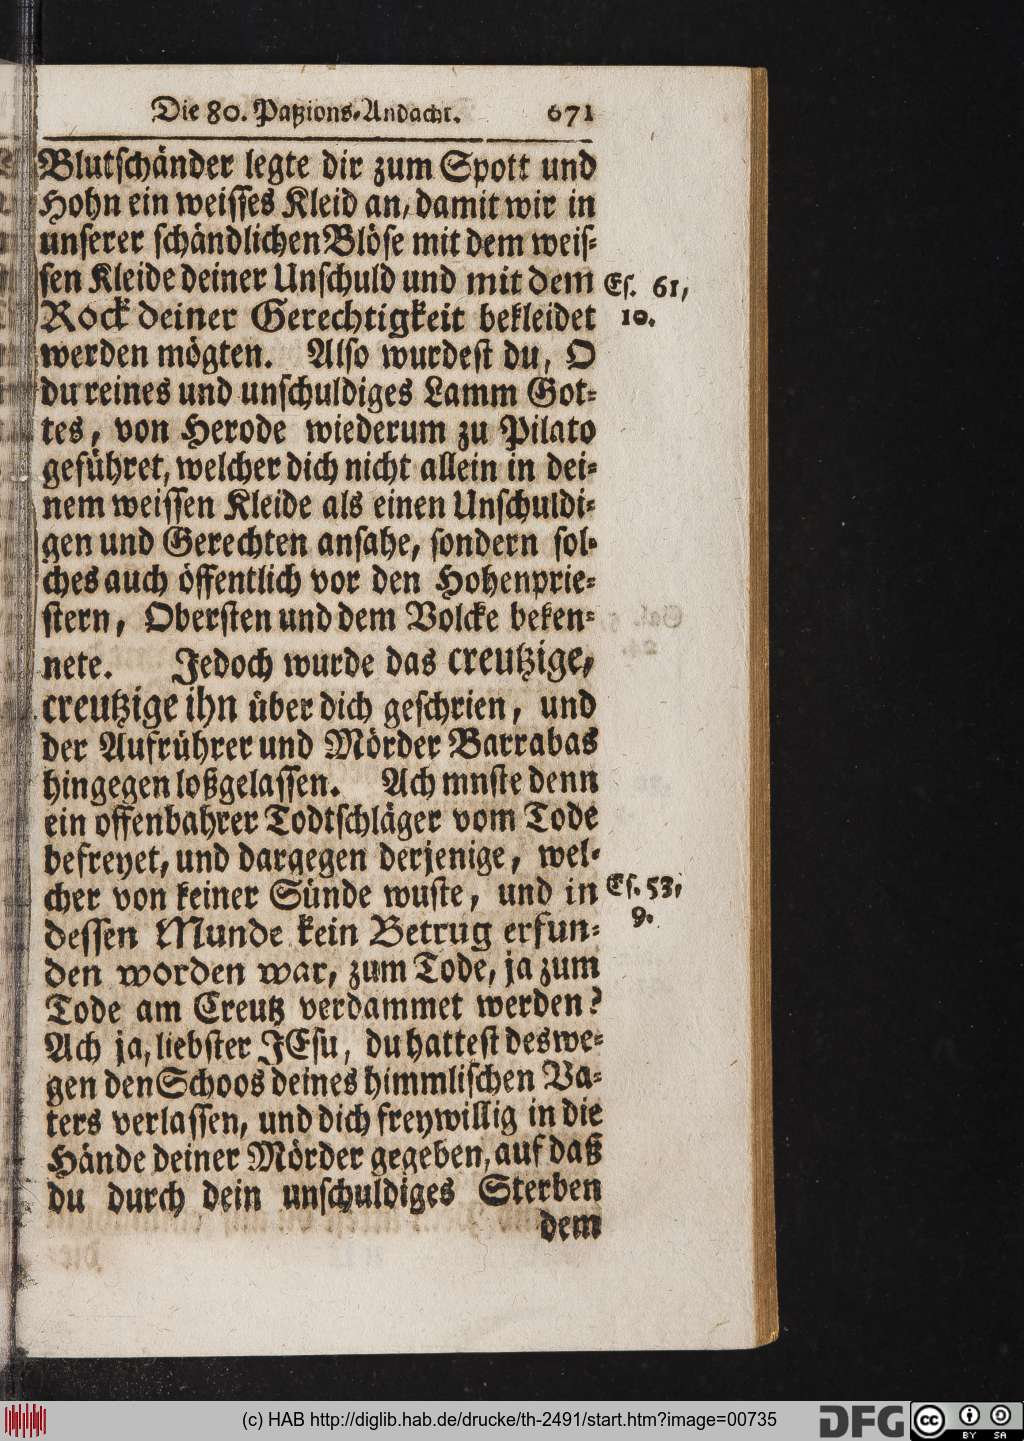 Die 80. Paßions-Andacht. 671
Blutschänder legte dir zum Spott und
Hohn ein weisses Kleid an, damit wir in
unserer schändlichen Blöse mit dem weis-
sen Kleide deiner Unschuld und mit dem
Es. 61,
Rock deiner Gerechtigkeit bekleidet
10.
werden mögten. Also wurdest du, O
du reines und unschuldiges Lamm Got-
tes, von Herode wiederum zu Pilato
geführet, welcher dich nicht allein in dei-
nem weissen Kleide als einen Unschuldi-
gen und Gerechten ansahe, sondern sol-
ches auch öffentlich vor den Hohenprie-
stern, Obersten und dem Volcke beken-
nete. Jedoch wurde das creutzige,
creutzige ihn über dich geschrien, und
der Aufrührer und Mörder Barrabas
hingegen loßgelassen. Ach mnste denn
ein offenbahrer Todtschläger vom Tode
befreyet, und dargegen derjenige, wel-
cher von keiner Sünde wuste, und in
Es. 53,
9.
dessen Munde kein Betrug erfun-
den worden war, zum Tode, ja zum
Tode am Creutz verdammet werden?
Ach ja, liebster JEsu, du hattest deswe-
gen den Schoos deines himmlischen Va-
ters verlassen, und dich freywillig in die
Hände deiner Mörder gegeben, auf daß
du durch dein unschuldiges Sterben
dem
(c) HAB http://diglib.hab.de/drucke/th-2491/start.htm?image=00735
DFG
cc BY SA